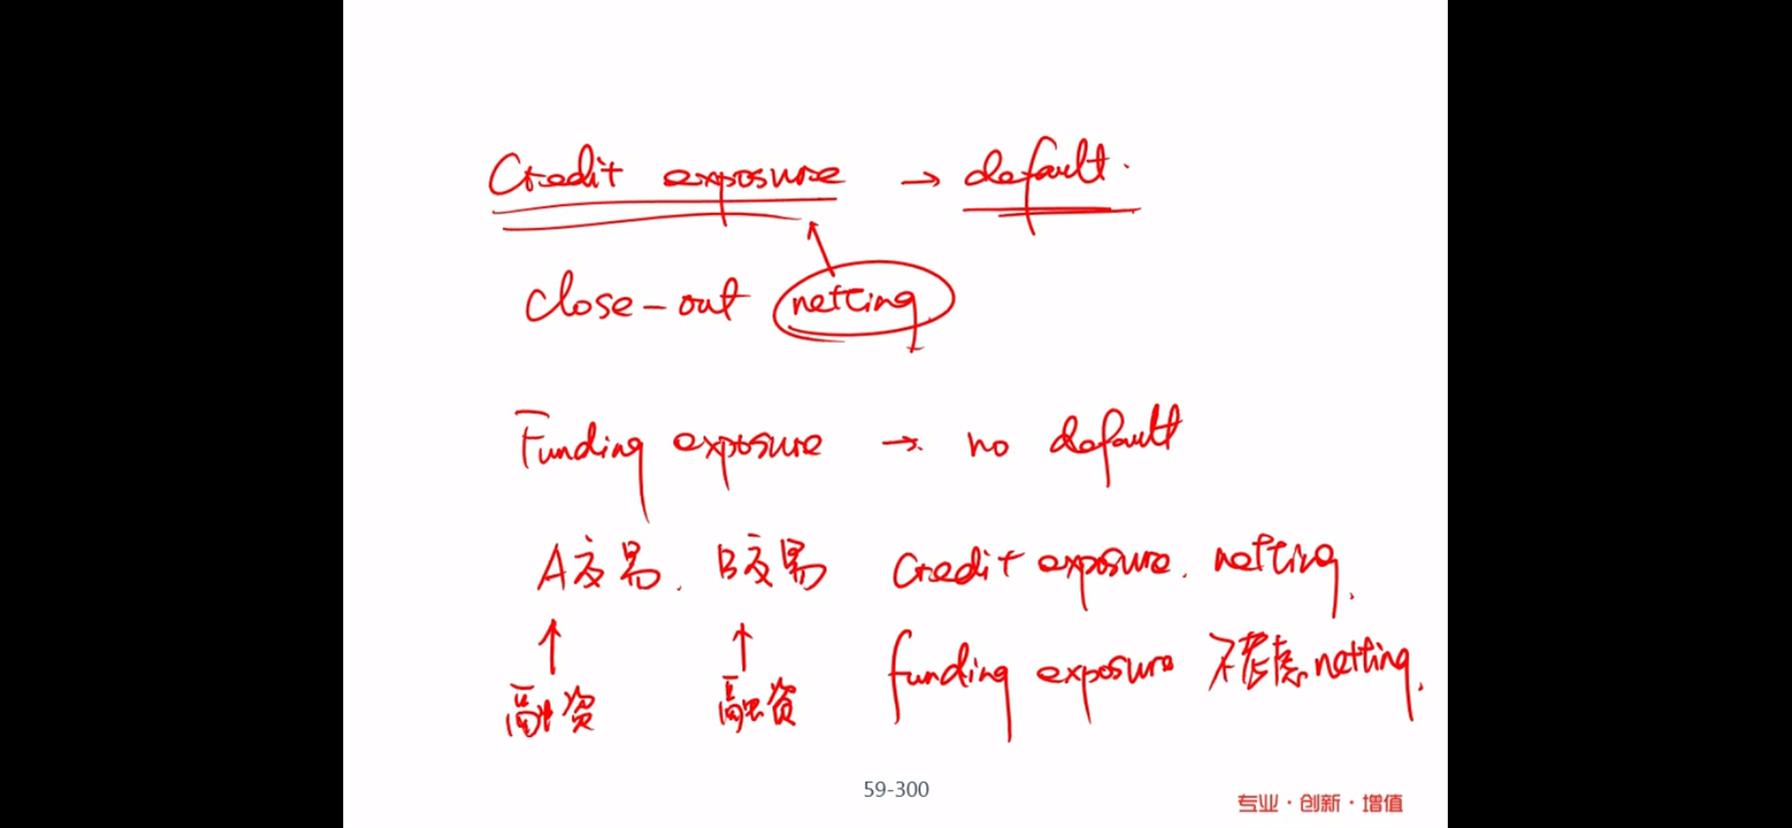 Credit exposure → default.
close-out netting
Funding exposure → no default
A交易. B交易 Credit exposure. netting.
↑ ↑ funding exposure 不考虑 netting.
融资 融资
59-300
专业·创新·增值